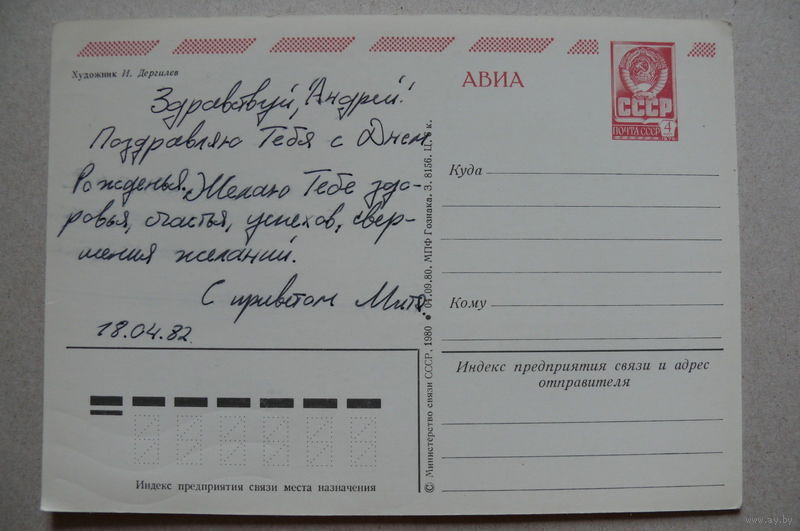 Художник И. Дергилев
Здравствуй, Андрей!
Поздравляю Тебя с Днем
Рожденья. Желаю Тебе здо-
ровья, счастья, успехов, свер-
шения желаний.
С приветом Митя.
18.04.82
Индекс предприятия связи места назначения
© Министерство связи СССР. 1980 • 01.09.80. МПФ Гознака. З. 8156. Ц. к.
АВИА
СССР
ПОЧТА СССР 4
Куда
Кому
Индекс предприятия связи и адрес
отправителя
www.ay.by